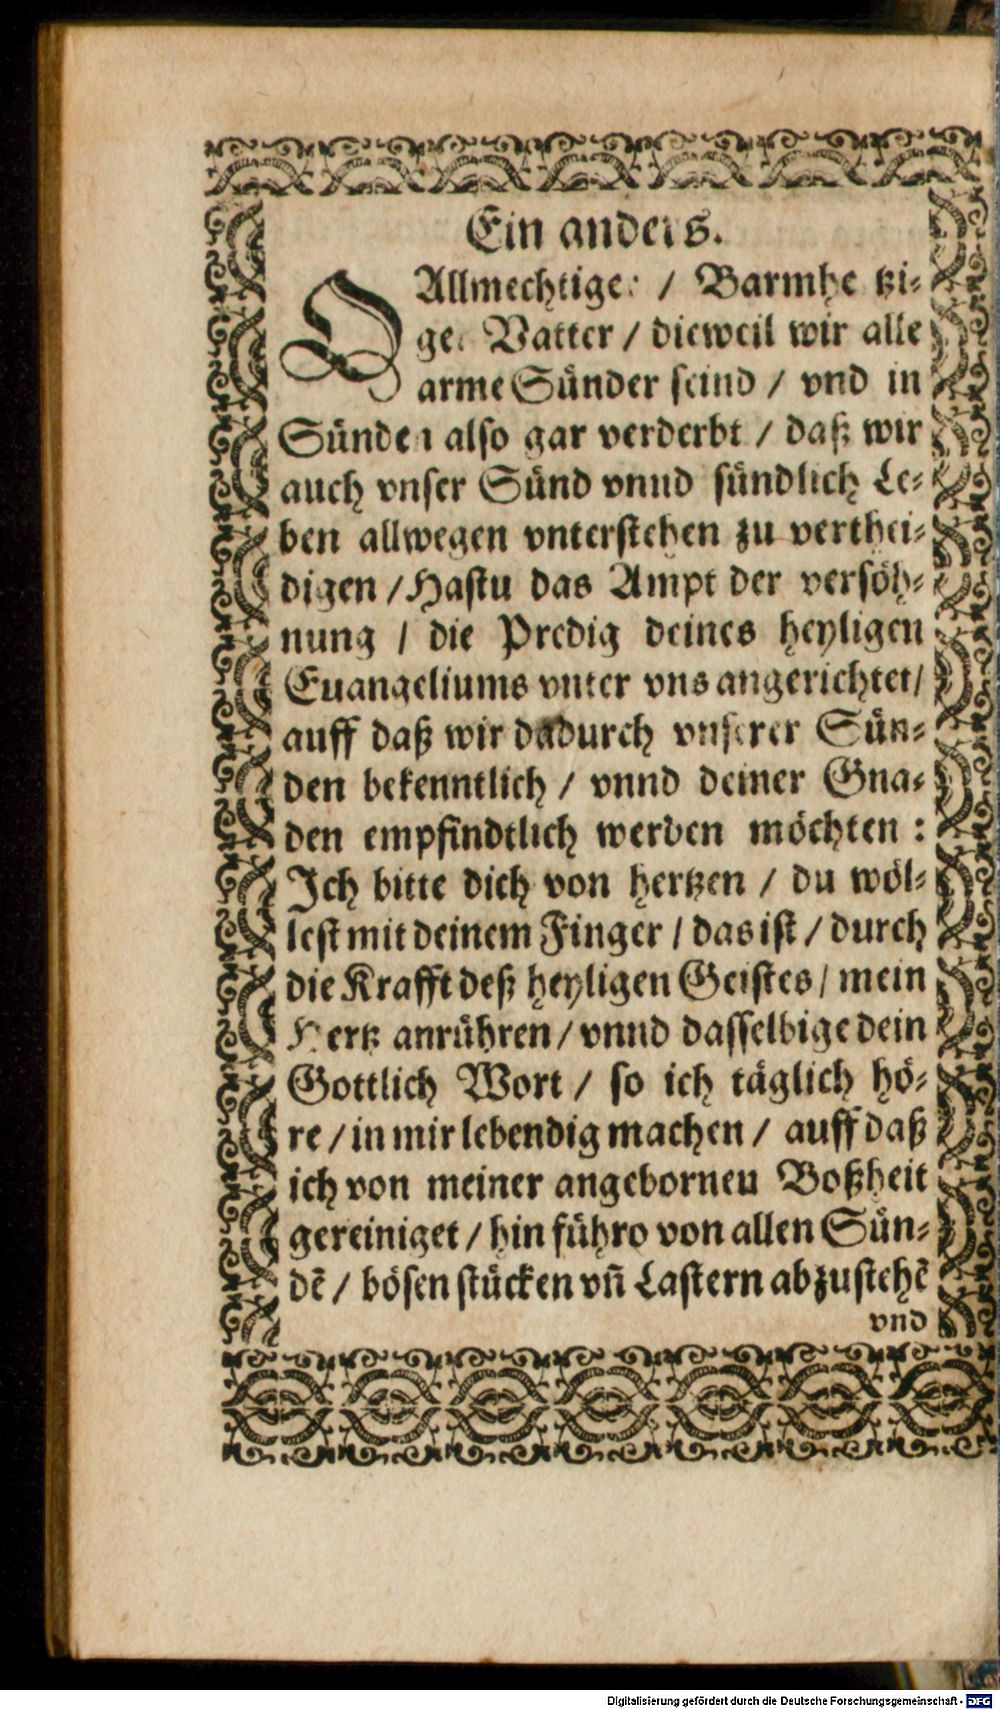 Ein anders.
O Allmechtiger / Barmhertzi-
ger Vatter / dieweil wir alle
arme Sünder seind / vnd in
Sünden also gar verderbt / daß wir
auch vnser Sünd vnnd sündlich Le-
ben allwegen vnterstehen zu verthei-
digen / Hastu das Ampt der versöh-
nung / die Predig deines heyligen
Euangeliums vnter vns angerichtet /
auff daß wir dadurch vnserer Sün-
den bekenntlich / vnnd deiner Gna-
den empfindtlich werden möchten :
Ich bitte dich von hertzen / du wöl-
lest mit deinem Finger / das ist / durch
die Krafft deß heyligen Geistes / mein
Hertz anrühren / vnnd dasselbige dein
Gottlich Wort / so ich täglich hö-
re / in mir lebendig machen / auff daß
ich von meiner angebornen Boßheit
gereiniget / hinführo von allen Sün-
dē / bösen stücken vñ Lastern abzustehē
vnd
Digitalisierung gefördert durch die Deutsche Forschungsgemeinschaft - DFG